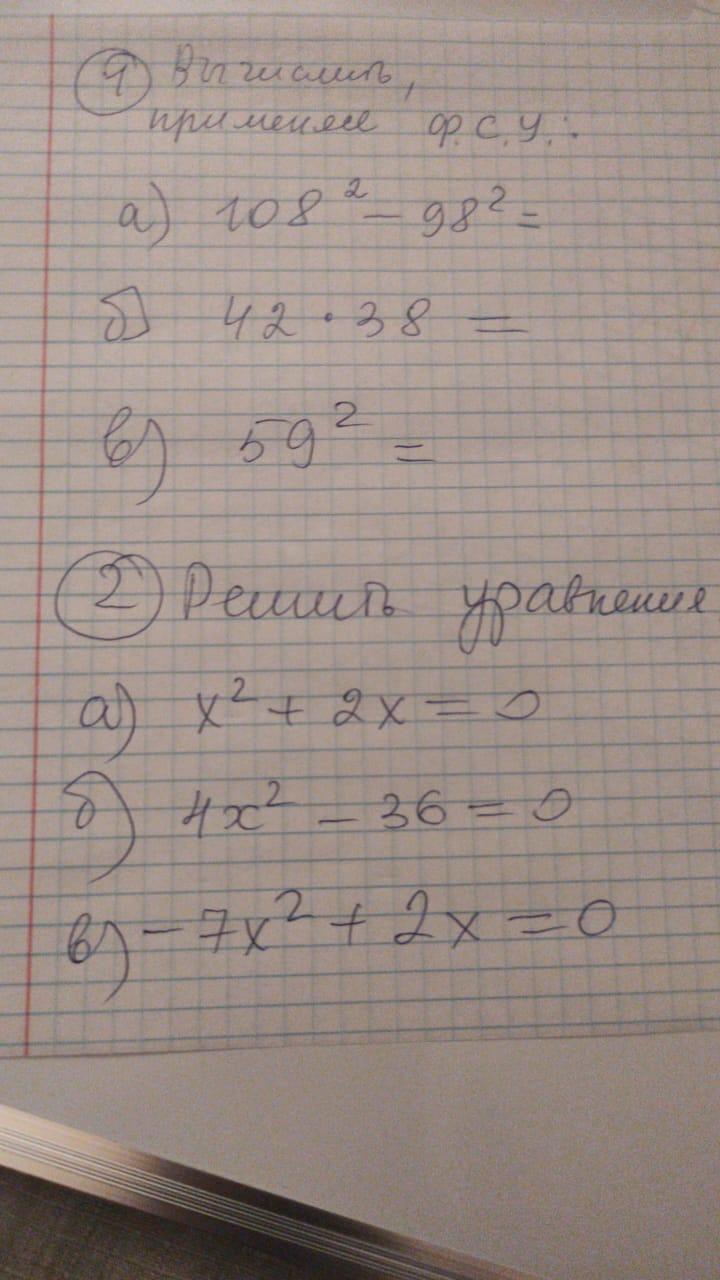 1 Вычислить,
применяя ф.с.у.:
а) 108² - 98² =
б) 42 · 38 =
в) 59² =
2 Решить уравнения
а) x² + 2x = 0
б) 4x² - 36 = 0
в) -7x² + 2x = 0